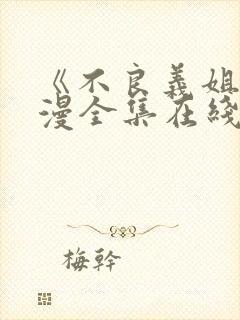 《不良義姐
漫全集在綫
梅幹